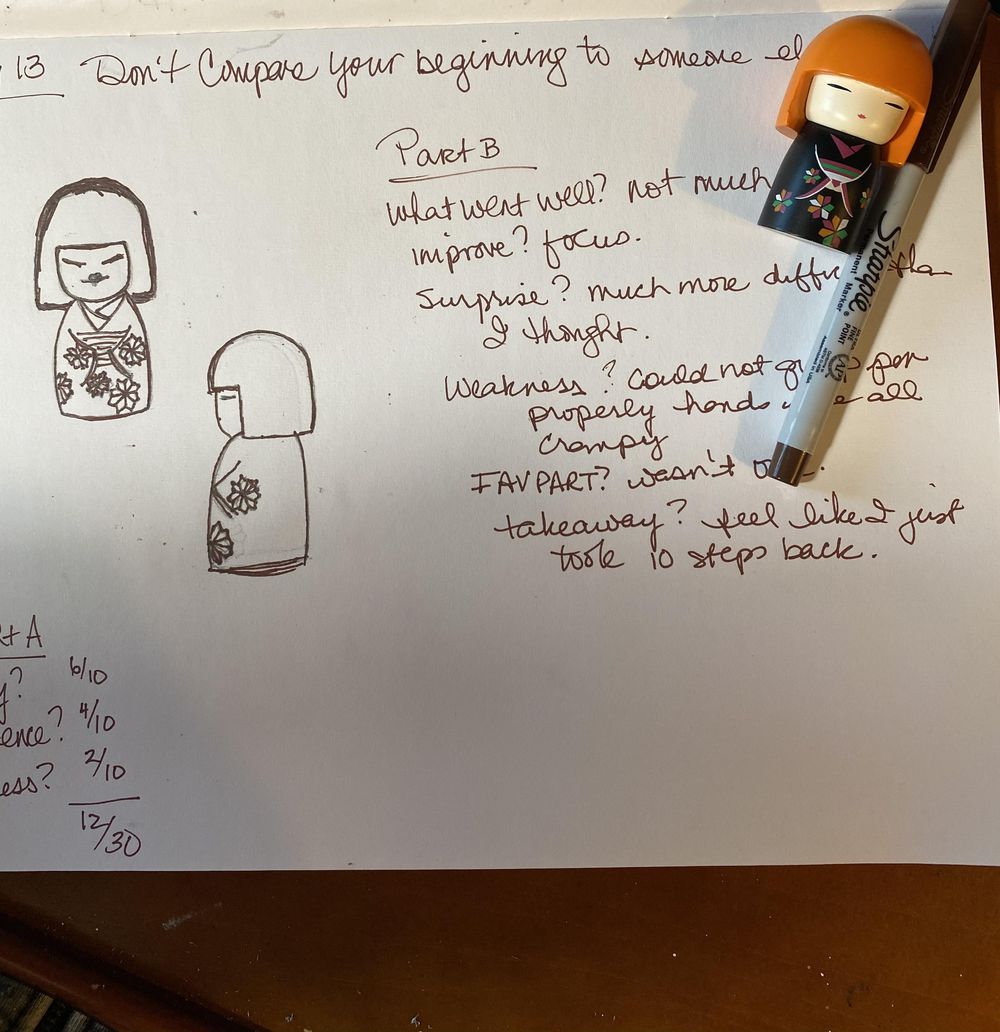 13 Don't Compare your beginning to someone
Part B
what went well? not much
improve? focus.
Surprise? much more
I thought.
Weakness? Could not pen
properly hands all
crampy
FAV PART? wasn't
takeaway? feel like I just
took 10 steps back.
Sharpie
Permanent Marker
FINE
POINT
A
6/10
4/10
2/10
12/30